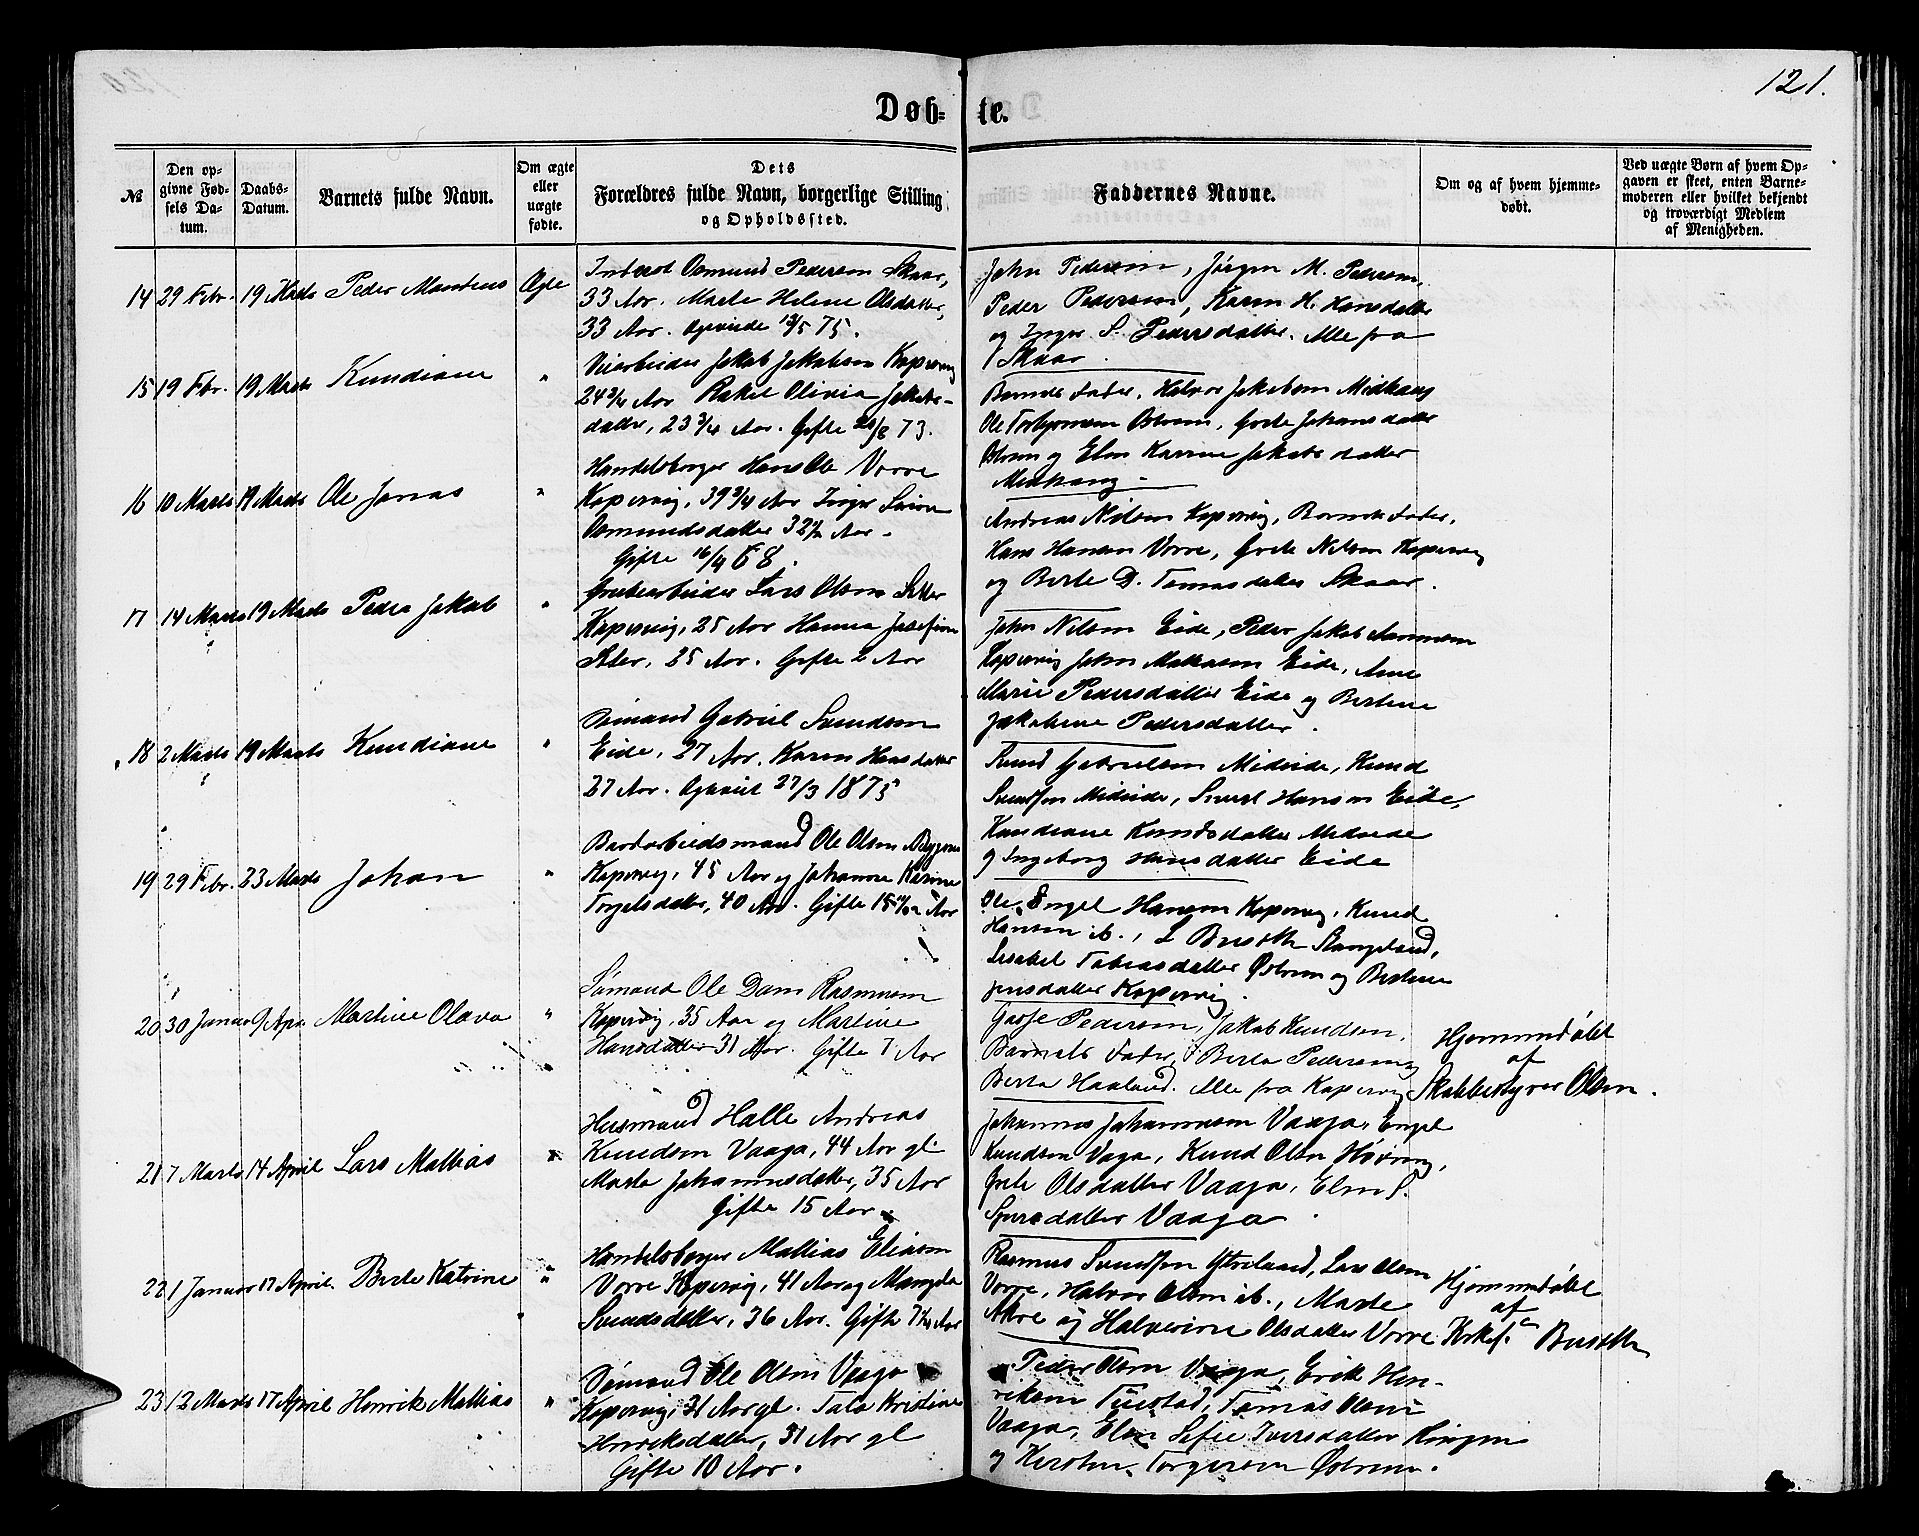 121.
Døb-te.
№
Den opgivne Fødsels Datum.
Daabs-Datum.
Barnets fulde Navn.
Om ægte eller uægte fødte.
Dets Forældres fulde Navn, borgerlige Stilling og Opholdssted.
Faddernes Navne.
Om og af hvem hjemmedøbt.
Ved uægte Børn af hvem Opgaven er skeet, enten Barnemoderen eller hvilket bekjendt og troværdigt Medlem af Menigheden.
14 29 Febr. 19 Marts Peder Ægte
Osmund Pederson Skaar,
33 Aar. Marte Helene Olsdatter,
33 Aar. 75.
John Pederson, Jørgen M. Pederson,
Peder Pederson, Karen H. Hansdatter
og Inger S. Pedersdatter. Alle fra
Skaar.
15 19 Febr. 19 Marts Kundiane "
Jakob Jakobson Kopervig
24 3/4 Aar Rakel Olivia Jakobs-
datter, 23 3/4 Aar. Gifte 73.
Barnets Fader, Halvor Jakobson Midhaug
Ole Torbjørnson Østrem, Grete Johansdatter
Østrem og Elen Karine Jakobsdatter
Midhaug
16 10 Marts 19 Marts Ole Jonas "
Handelsborger Hans Ole Vorre
Kopervig, 39 3/4 Aar Inger
Osmundsdatter 32 1/2 Aar.
Gifte 16/4 68.
Andreas Nilsen Kopervig, Barnets Fader,
Hans Hansen Vorre, Grete Nilsen Kopervig
og Berte D. Tomasdatter Skaar.
17 14 Marts 19 Marts Peder Jakob "
Grubearbeider Lars Olson
Kopervig, 25 Aar Hanna Josefine
25 Aar. Gifte 2 Aar
John Nilson Eide, Peder Jakob
Kopervig John Eide, Anne
Marie Pedersdatter Eide og Bertine
Jakobine Pedersdatter.
18 2 Marts 19 Marts Kundiane "
Sømand Gabriel Svendson
Eide, 27 Aar. Karen Hansdatter
27 Aar. 27/3 1875
Gabrielsen Mideide, Knud
Svendsen Mideide, Sivert Hanson Eide,
Kundiane Knudsdatter Mideide
og Ingeborg Hansdatter Eide
19 29 Febr. 23 Marts Johan "
Ole Olson
Kopervig, 45 Aar og Johanne Karine
Torgelsdatter, 40 Aar. Gifte Aar
Ole Engel Hanson Kopervig, Knud
Hanson ib., L Busoth Stangeland,
Tobiasdatter Østrem og Bertine
Jensdatter Kopervig.
20 30 Januar 9 Apr Martine Olava "
Sømand Ole Dam Rasmuson
Kopervig, 35 Aar og Martine
Hansdatter 31 Aar. Gifte 7 Aar
Pederson, Jakob Knudson,
Barnets Fader, Berta Pederson og
Berta Haaland. Alle fra Kopervig
Hjemmedøbt
af
Olson.
21 7 Marts 14 April Lars Mathias "
Husmand Halle Andreas
Knudson Vaaga, 44 Aar gl
Marta Johannesdatter, 35 Aar
Gifte 15 Aar
Johannes Johanneson Vaaga, Engel
Knudson Vaga, Knud Olson Høvring,
Grete Olsdatter Vaaga, Elen S.
Vaaga.
22 1 Januar 17 April Berte Katrine "
Handelsborger Mathias Eliason
Vorre Kopervig, 41 Aar og
Svendsdatter, 36 Aar. Gifte Aar
Rasmus Svendsen Ytreland, Lars Olson
Vorre, Halvor Olson ib., Marte
og Halverine Olsdatter Vorre
Hjemmedøbt
af
Busoth
23 12 Marts 17 April Henrik Mathias "
Sømand Ole Olson Vaaga
Kopervig, 31 Aar gl. Kristine
Henriksdatter, 31 Aar gl
Gifte 10 Aar.
Peder Olson Vaaga, Erik Hen-
rikson Tuestad, Tomas Olson
Vaaga, Elen Sofie Iversdatter
og Torgerson Østrem.